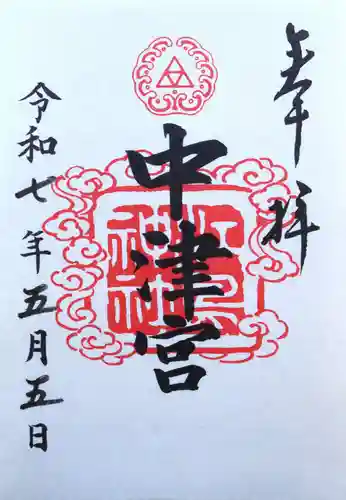 奉拝
中津宮
令和七年五月五日